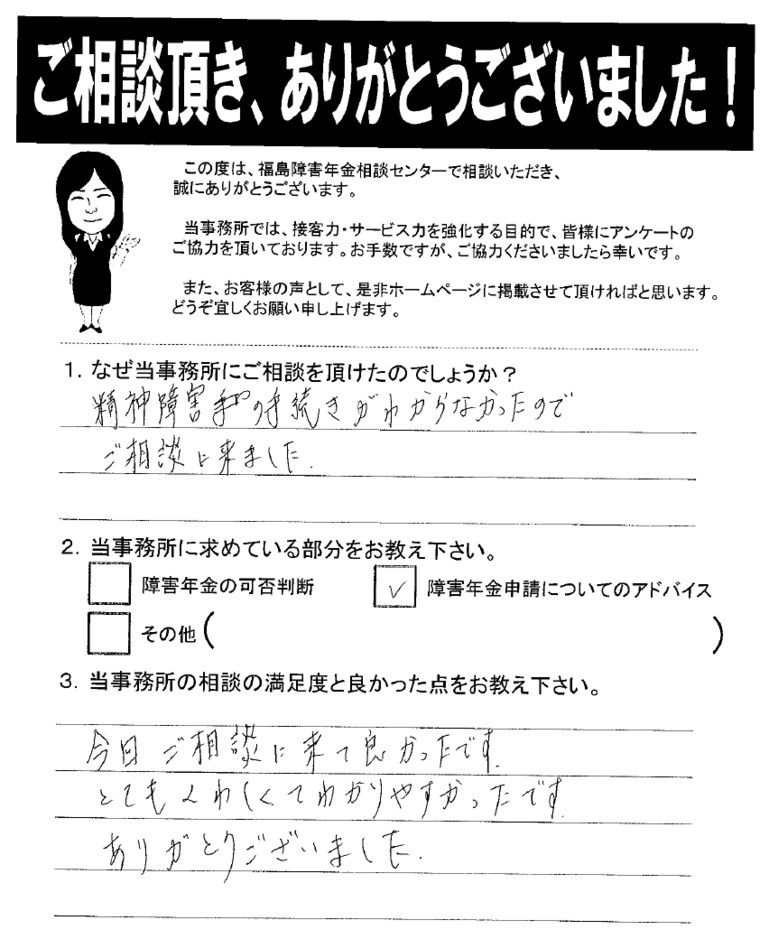 ご相談頂き、ありがとうございました！
この度は、福島障害年金相談センターで相談いただき、
誠にありがとうございます。
当事務所では、接客力・サービス力を強化する目的で、皆様にアンケートの
ご協力を頂いております。お手数ですが、ご協力くださいましたら幸いです。
また、お客様の声として、是非ホームページに掲載させて頂ければと思います。
どうぞ宜しくお願い申し上げます。
1．なぜ当事務所にご相談を頂けたのでしょうか？
精神障害の手続きがわからなかったので
ご相談に来ました.
2．当事務所に求めている部分をお教え下さい。
障害年金の可否判断 ✓ 障害年金申請についてのアドバイス
その他（ ）
3．当事務所の相談の満足度と良かった点をお教え下さい。
今回ご相談に来て良かったです.
とてもくわしくてわかりやすかったです
ありがとうございました.